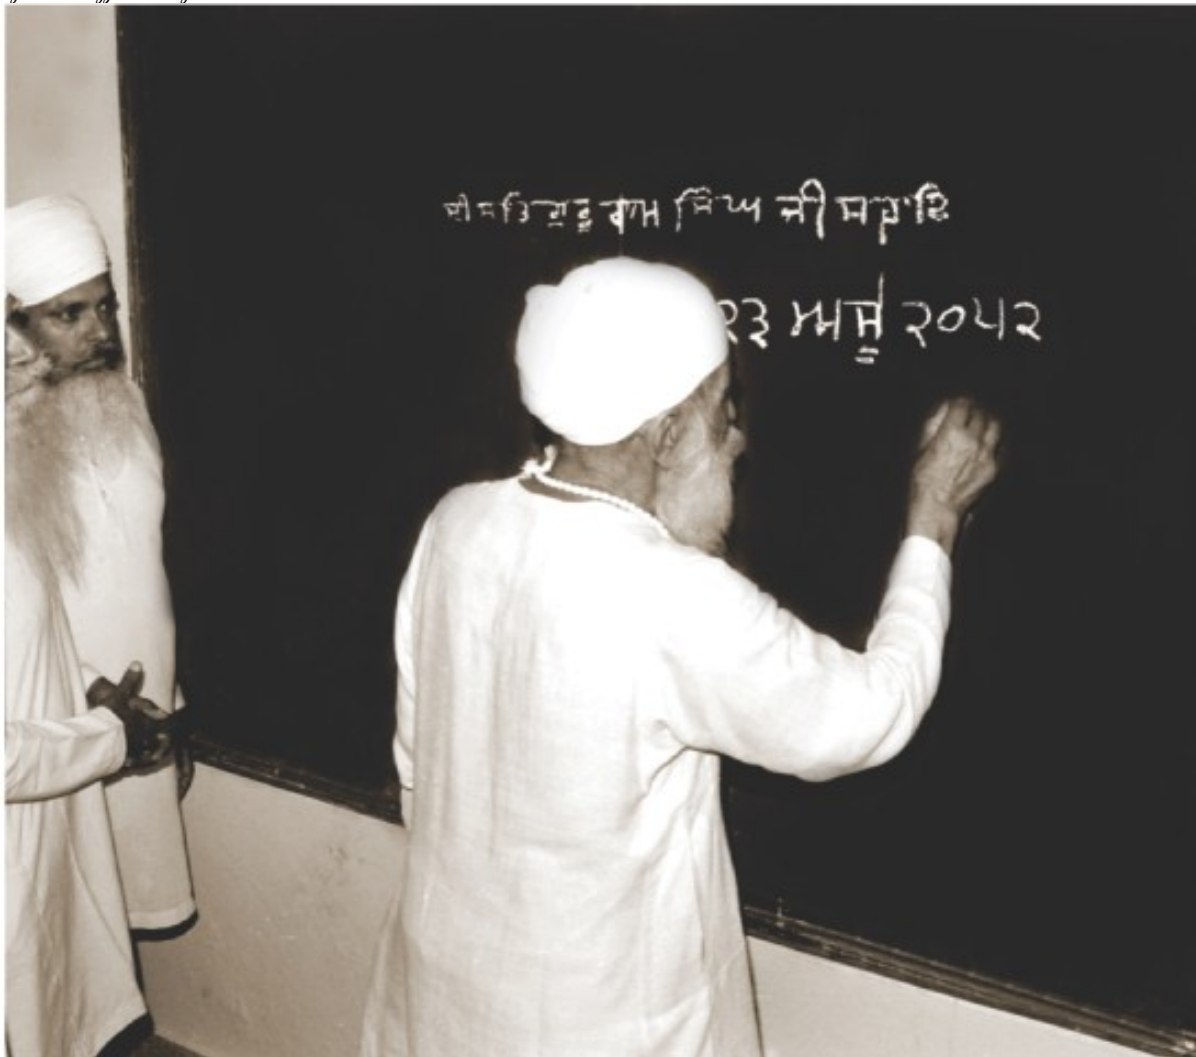 ਸ੍ਰੀ ਸਤਿਗੁਰੂ ਰਾਮ ਸਿੰਘ ਜੀ ਸਹਾਇ
੨੩ ਅਸੂ ੨੦੫੨